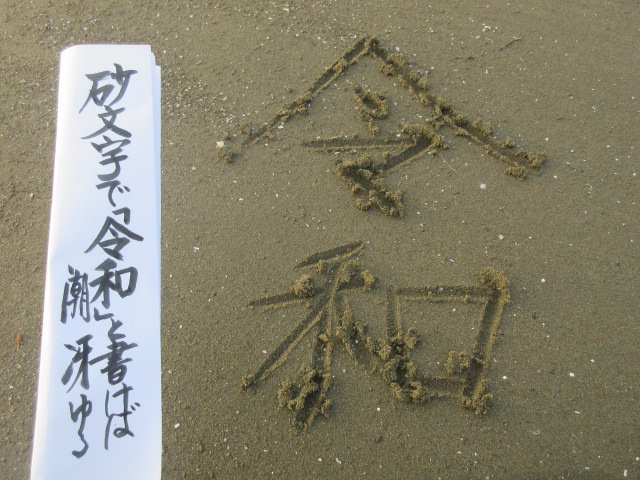 砂文字で「令和」と書けば
潮冴ゆる
令和